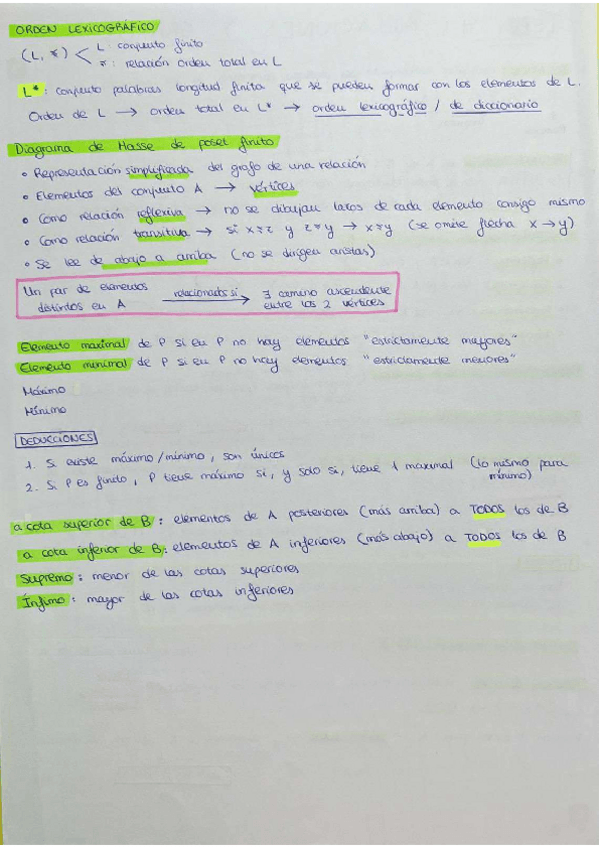 ORDEN LEXICOGRÁFICO
(L, *) < L: conjunto finito
*: relación orden total en L
L*: conjunto palabras longitud finita que se pueden formar con los elementos de L.
Orden de L → orden total en L* → orden lexicográfico / de diccionario
Diagrama de Hasse de poset finito
• Representación simplificada del grafo de una relación
• Elementos del conjunto A → vértices
• Como relación reflexiva → no se dibujan lazos de cada elemento consigo mismo
• Como relación transitiva → si x*z y z*y → x*y (se omite flecha x→y)
• Se lee de abajo a arriba (no se dirigen aristas)
Un par de elementos distintos en A relacionados si → ∃ camino ascendente entre los 2 vértices
Elemento maximal de P si en P no hay elementos "estrictamente mayores"
Elemento minimal de P si en P no hay elementos "estrictamente menores"
Máximo
Mínimo
DEDUCCIONES
1. Si existe máximo/mínimo, son únicos
2. Si P es finito, P tiene máximo si, y solo si, tiene 1 maximal (lo mismo para mínimo)
a cota superior de B: elementos de A posteriores (más arriba) a TODOS los de B
a cota inferior de B: elementos de A inferiores (más abajo) a TODOS los de B
Supremo: menor de las cotas superiores
Ínfimo: mayor de las cotas inferiores